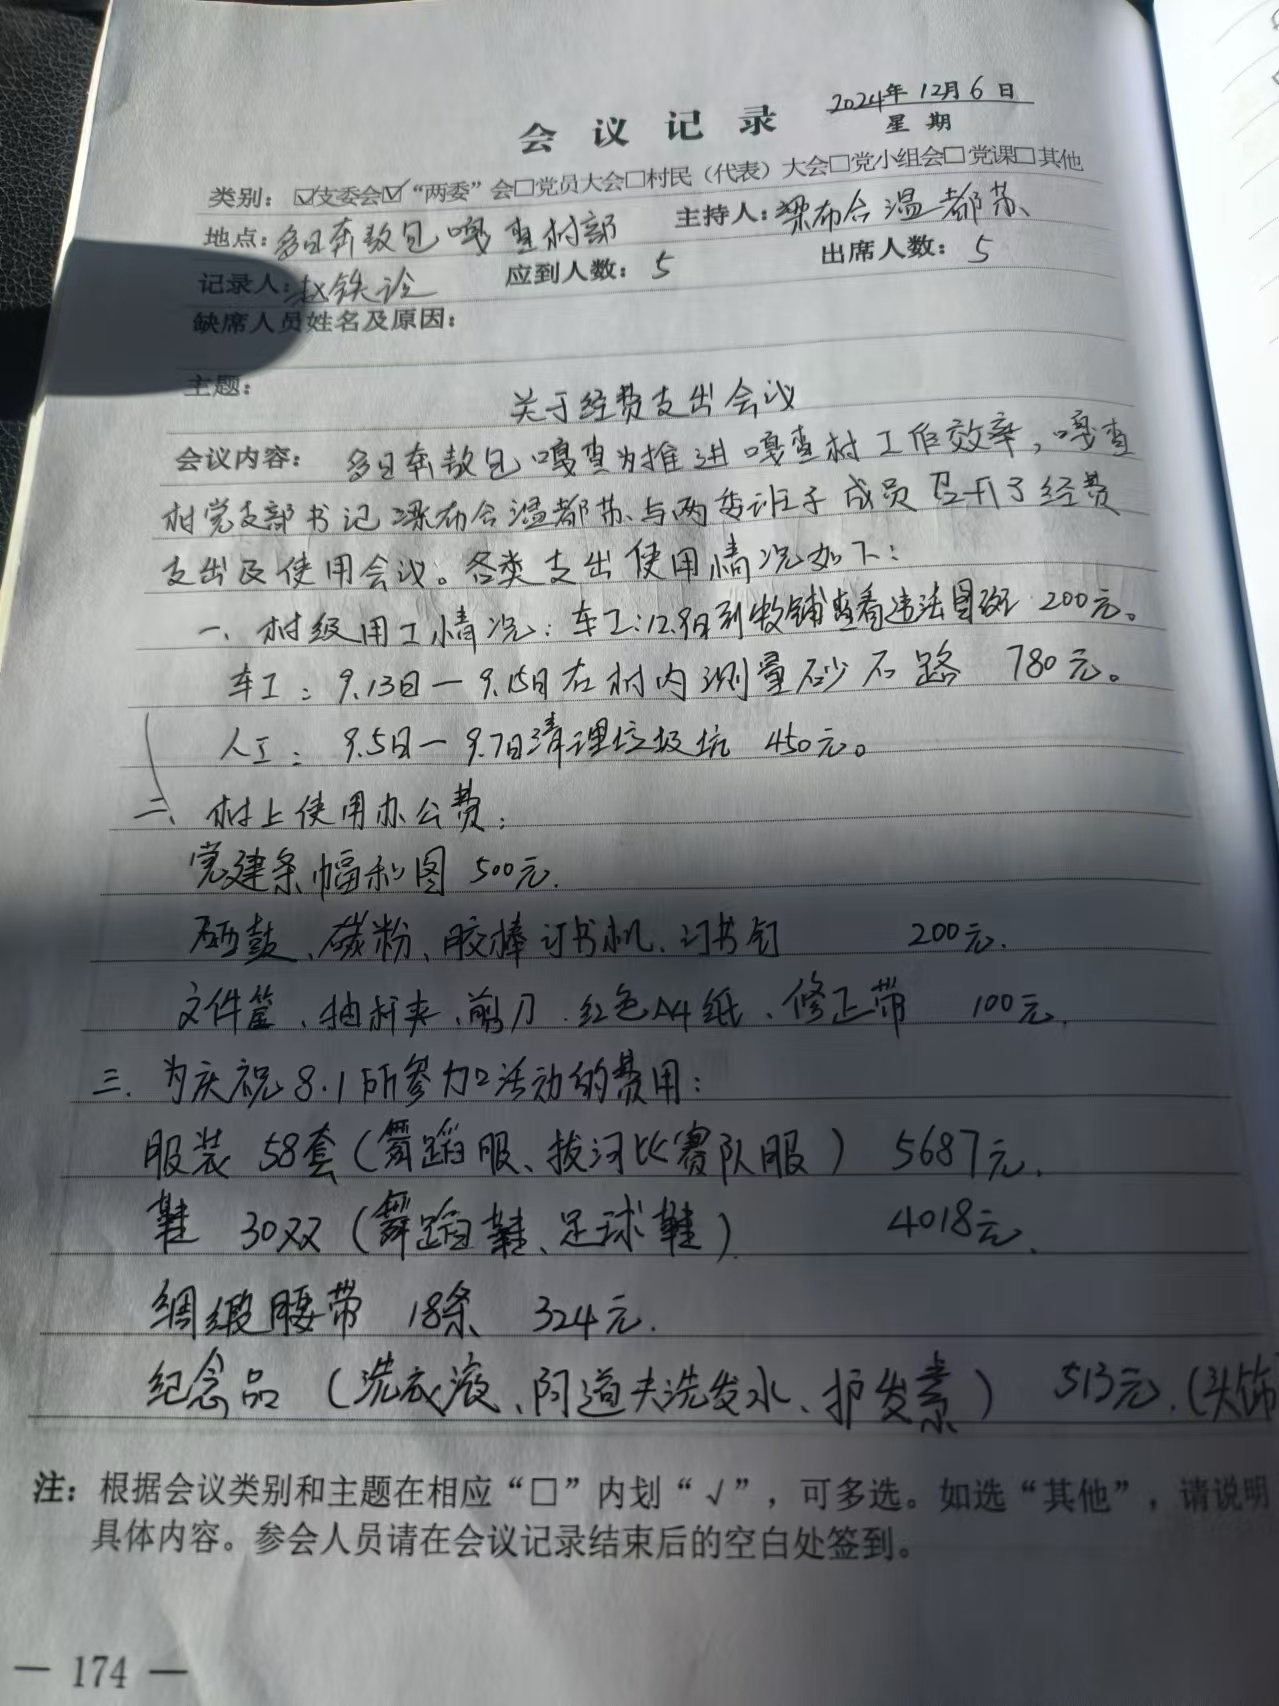 2024年 12月 6 日
会议记录
星期
类别：☑支委会☑“两委”会□党员大会□村民（代表）大会□党小组会□党课□其他
地点：多日奔敖包嘎查村部 主持人：梁布合温都苏
记录人：赵铁 应到人数：5 出席人数：5
缺席人员姓名及原因：
主题：
关于经费支出会议
会议内容：多日奔敖包嘎查为推进嘎查村工作效率，嘎查
村党支部书记梁布合温都苏与两委班子成员召开了经费
支出及使用会议。各类支出使用情况如下：
一、村级用工情况：车工：12.9日到牧铺查看违法 200元。
车工：9.13日—9.15日在村内测量砂石路 780元。
人工：9.5日—9.7日清理垃圾坑 450元。
二、村上使用办公费：
党建条幅和图 500元.
硒鼓、碳粉、胶棒订书机、订书钉 200元.
文件筐、抽杆夹、剪刀.红色A4纸、修正带 100元.
三.为庆祝8.1所参加活动的费用：
服装 58套（舞蹈服、拔河比赛队服） 5687元.
鞋 30双（舞蹈鞋、足球鞋） 4018元.
绸缎腰带 18条 324元.
纪念品（洗衣液、阿道夫洗发水、护发素） 513元.(头饰
注：根据会议类别和主题在相应“□”内划“√”，可多选。如选“其他”，请说明
具体内容。参会人员请在会议记录结束后的空白处签到。
— 174 —